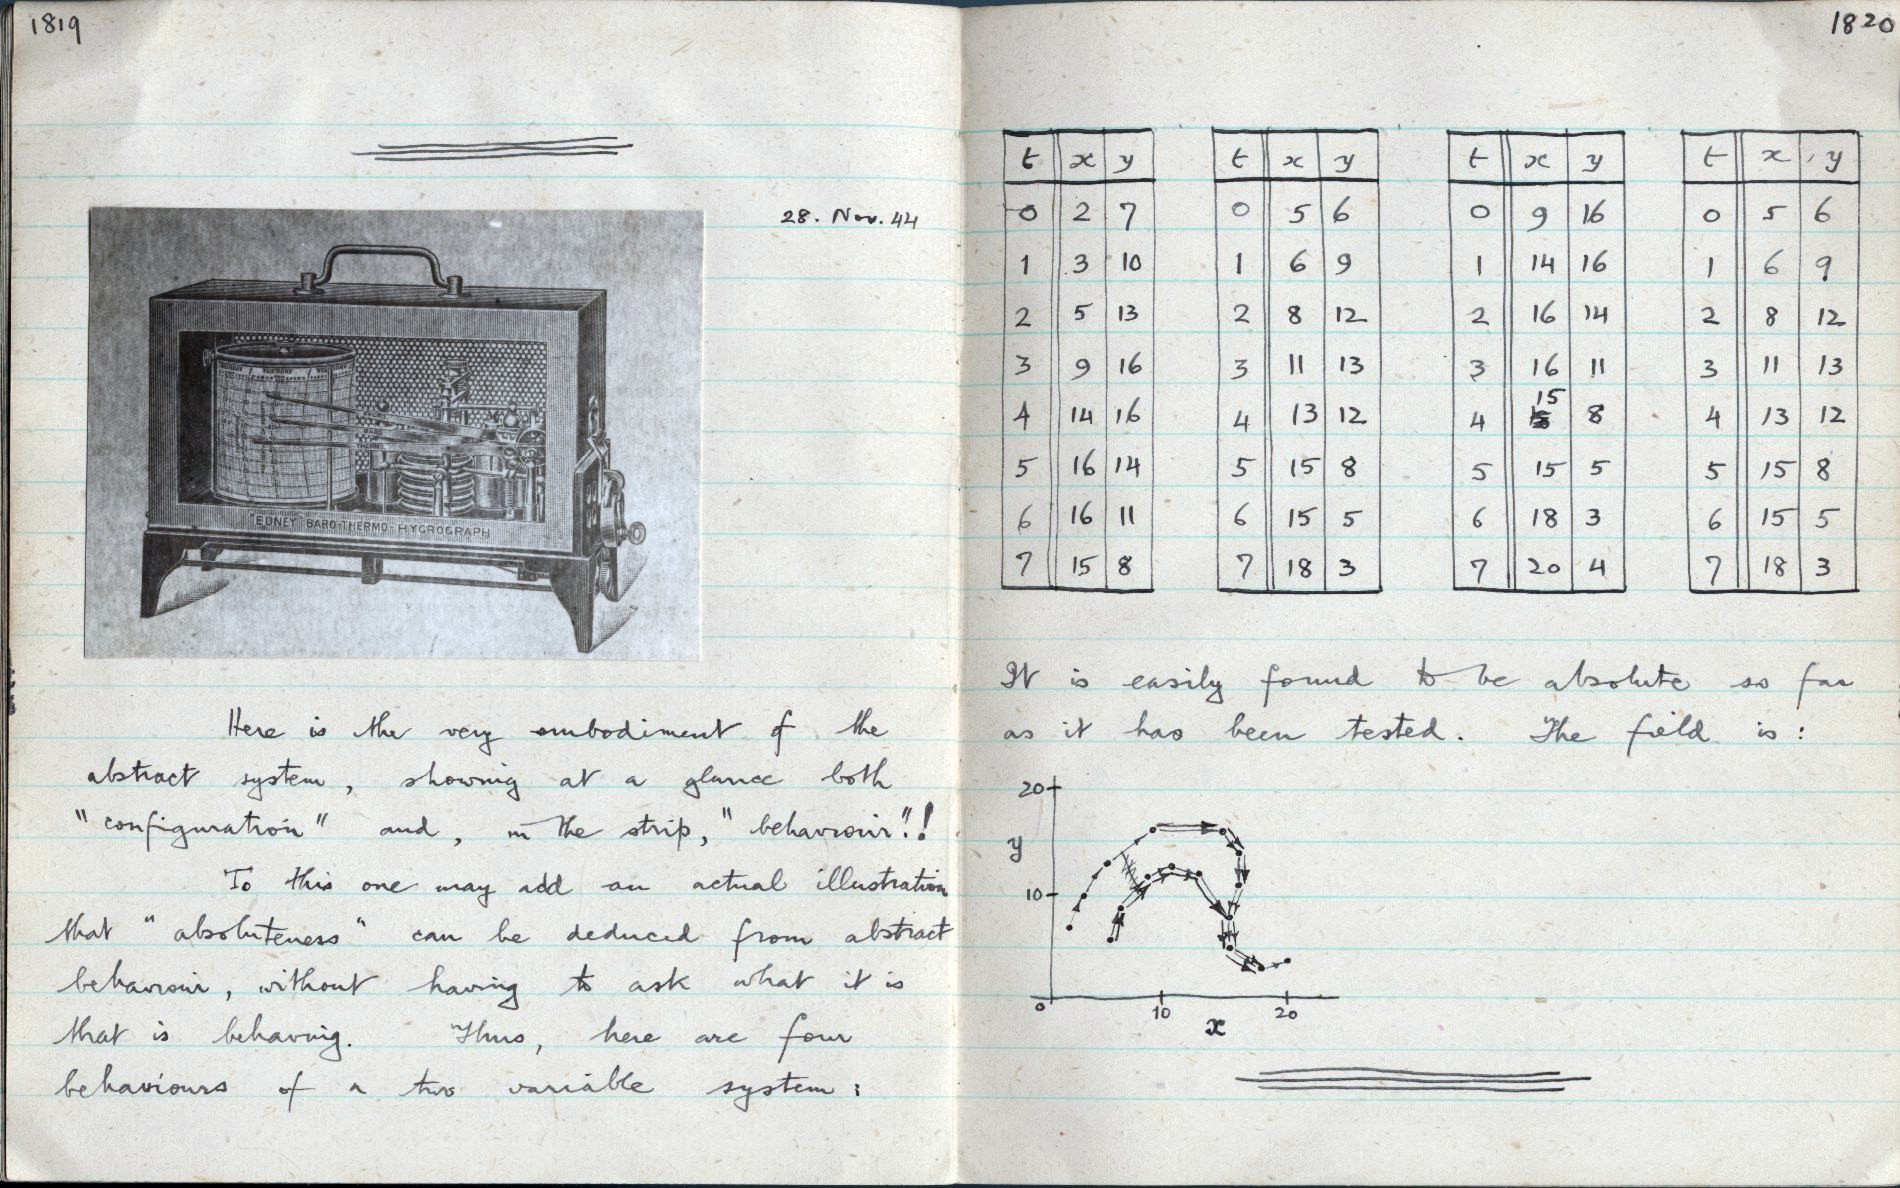 1819
28. Nov. 44
"EDNEY" BARO-THERMO-HYGROGRAPH
Here is the very embodiment of the
abstract system, showing at a glance both
"configuration" and, in the strip, "behaviour"!!
To this one may add an actual illustration
that "absoluteness" can be deduced from abstract
behaviour, without having to ask what it is
that is behaving. Thus, here are four
behaviours of a two variable system:
1820
t x y t x y t x y t x y
0 2 7 0 5 6 0 9 16 0 5 6
1 3 10 1 6 9 1 14 16 1 6 9
2 5 13 2 8 12 2 16 14 2 8 12
3 9 16 3 11 13 3 16 11 3 11 13
4 14 16 4 13 12 4 15 8 4 13 12
5 16 14 5 15 8 5 15 5 5 15 8
6 16 11 6 15 5 6 18 3 6 15 5
7 15 8 7 18 3 7 20 4 7 18 3
It is easily found to be absolute so far
as it has been tested. The field is:
20
y
10
0 10 20
x